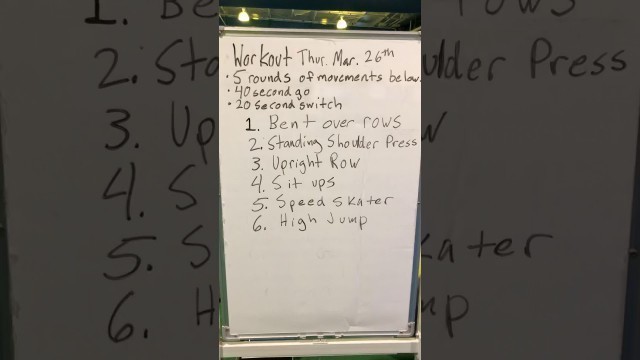 Workout Thur. Mar. 26th
• 5 rounds of movements below.
• 40 second go
• 20 second switch
1. Bent over rows
2. Standing Shoulder Press
3. Upright Row
4. Sit ups
5. Speed skater
6. High Jump